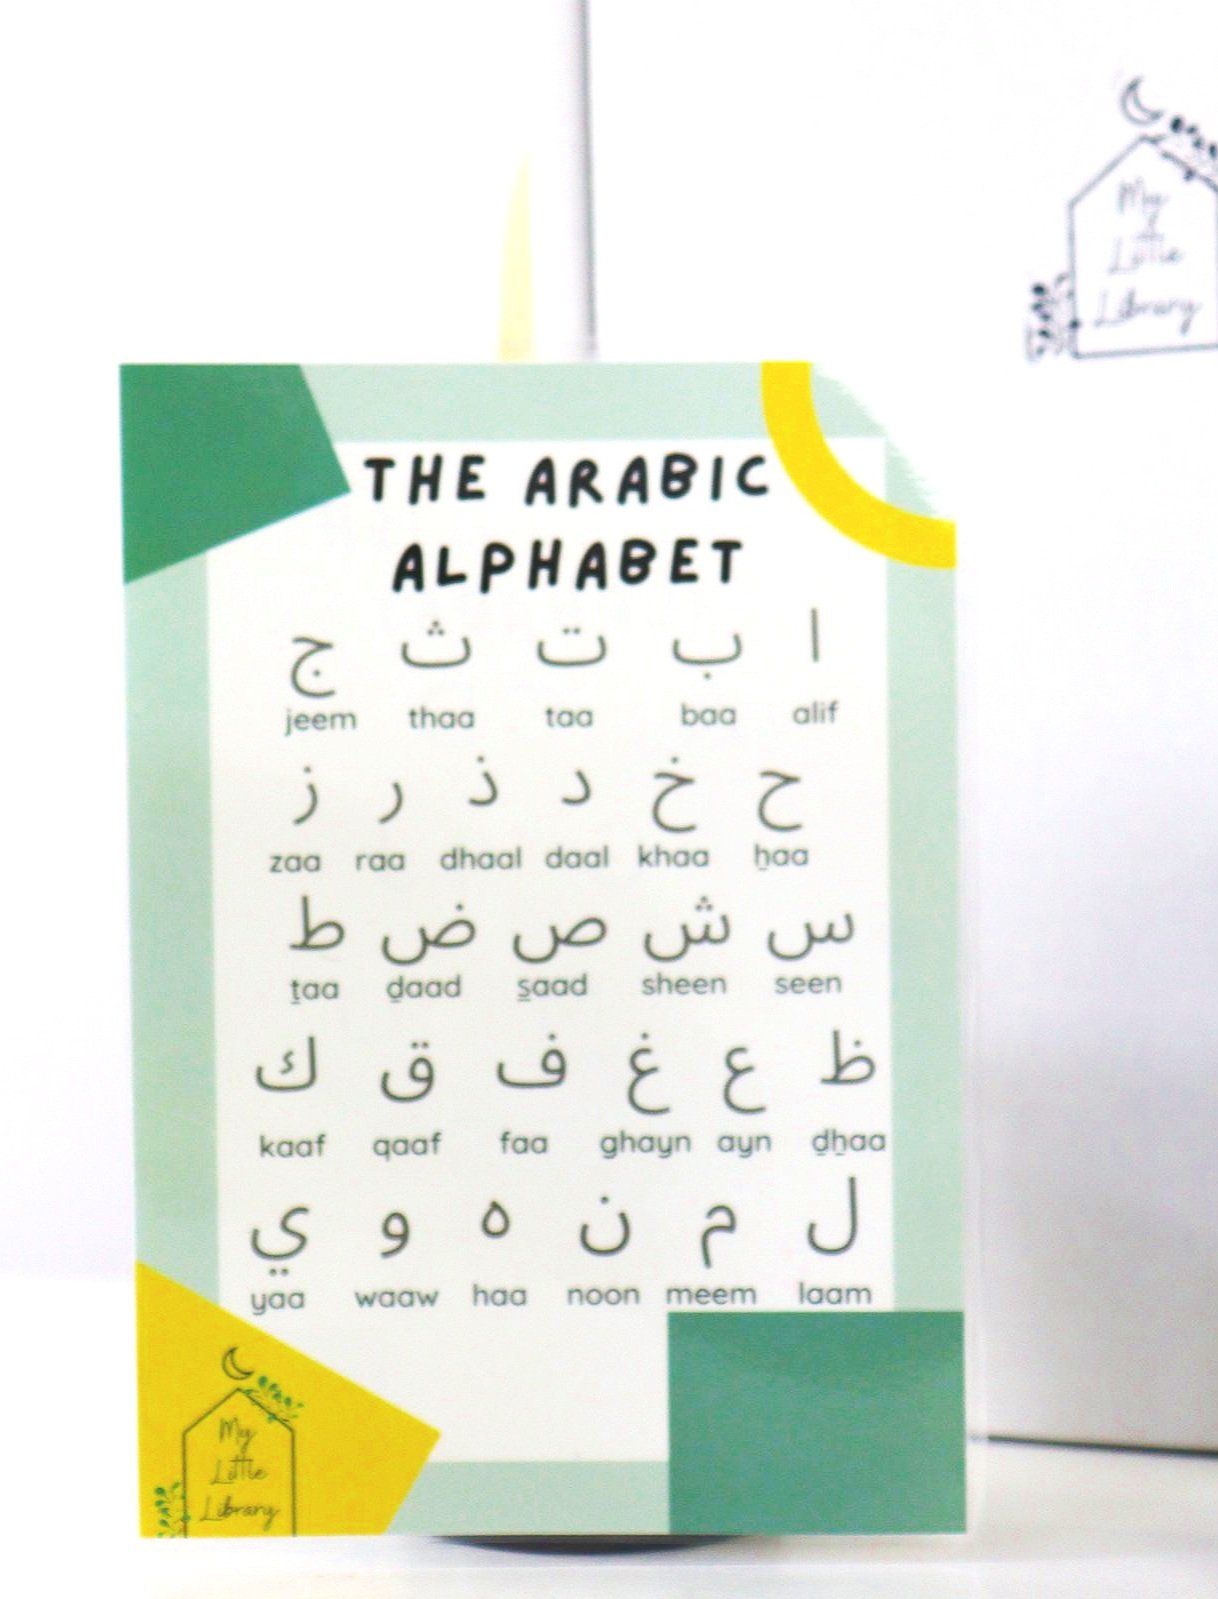 My
Little
Library
THE ARABIC
ALPHABET
ا ب ت ث ج
alif baa taa thaa jeem
ح خ د ذ ر ز
ẖaa khaa daal dhaal raa zaa
س ش ص ض ط
seen sheen s̱aad ḏaad ṯaa
ظ ع غ ف ق ك
ḏẖaa ayn ghayn faa qaaf kaaf
ل م ن ه و ي
laam meem noon haa waaw yaa
My
Little
Library